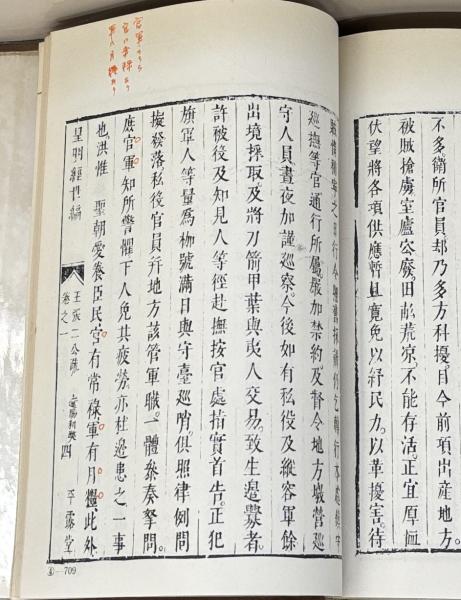 不多衛所官員却乃多方科擾目今前項出產地方
被賊搶虜室廬空廢田畝荒凉不能存活正宜厚恤
伏望將各項供應暫且寬免以紓民力以革擾害待
巡撫等官通行所屬嚴加禁約及督令地方墩營巡
守人員晝夜加謹巡察今後如有私役及縱容軍餘
出境採取及將刀箭甲葉與夷人交易致生邊釁者
許被役及知見人等徑赴撫按官處指實首告正犯
旗軍人等量爲枷號滿日與守臺巡哨俱照律例問
擬發落私役官員幷地方該管軍職一體叅奏拏問
庶官軍知所警懼下人免其疲勞亦杜邊患之一事
也洪惟 聖朝愛養臣民官有常祿軍有月糧此外
皇明經世編
王張二公疏
卷之一
四
平露堂
④—709